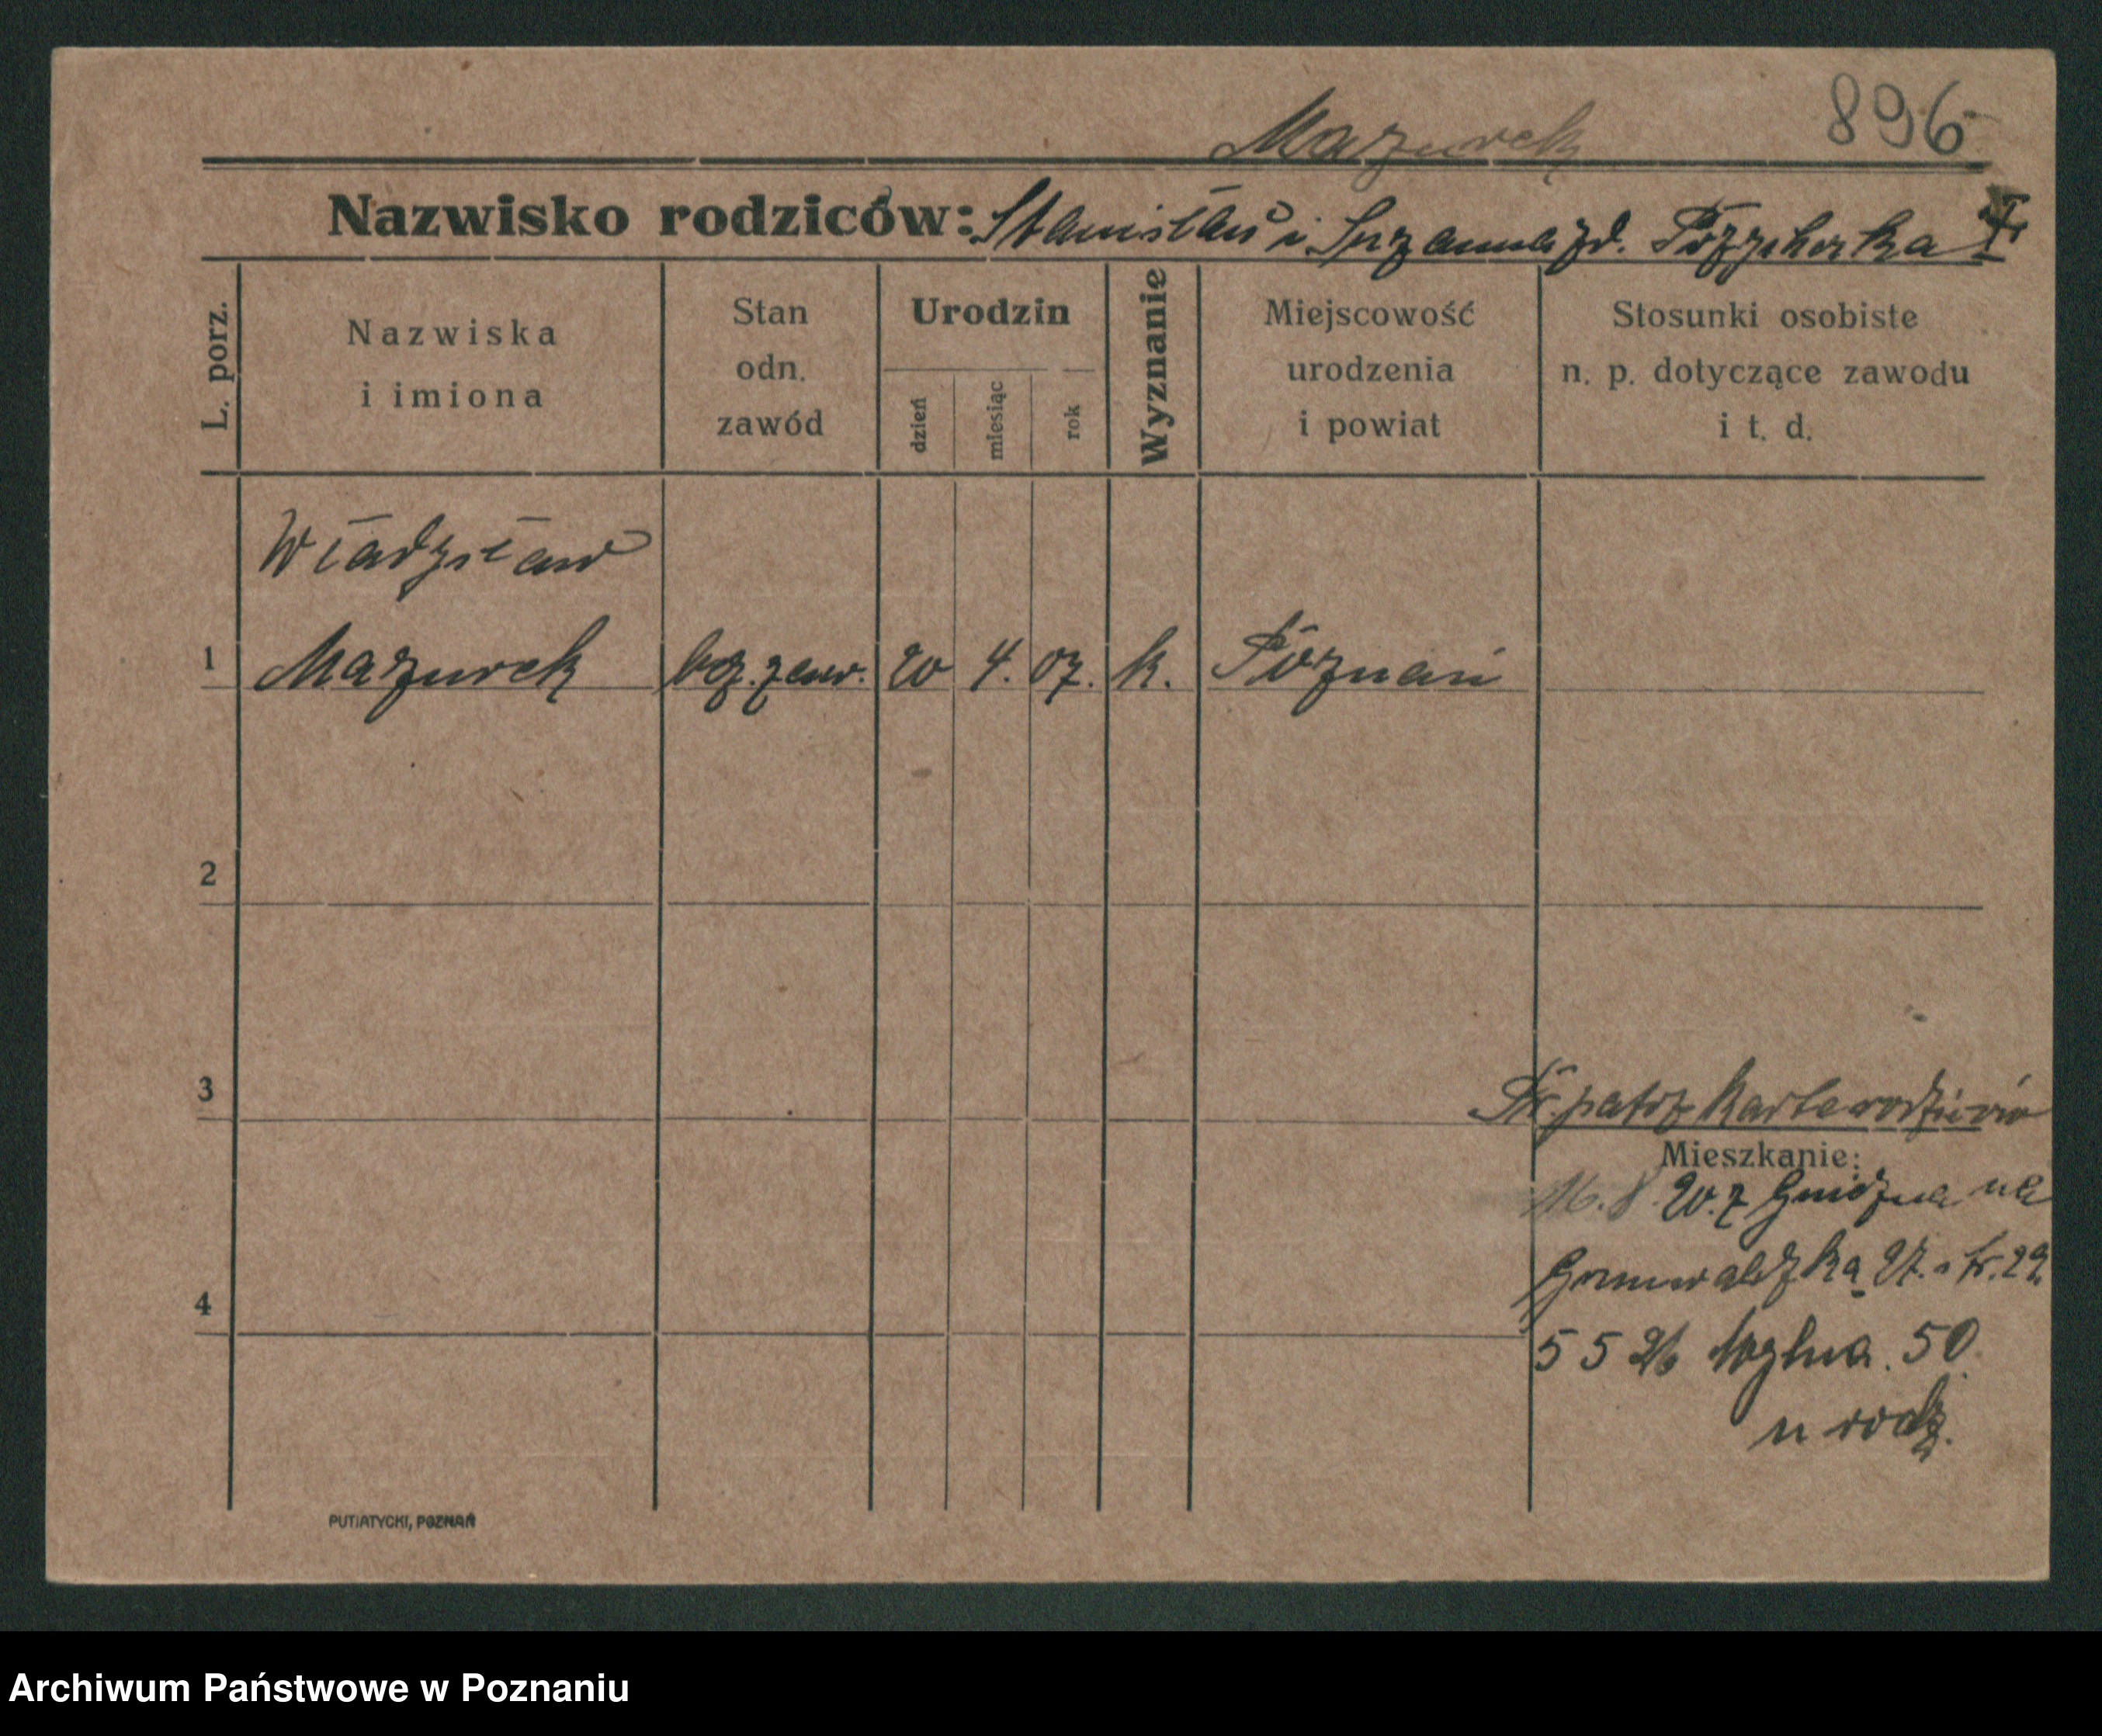 Mazurek
896
Nazwisko rodziców: Stanisław i Zuzanna zd.
L. porz.
Nazwiska
i imiona
Stan
odn.
zawód
Urodzin
dzień
miesiąc
rok
Wyznanie
Miejscowość
urodzenia
i powiat
Stosunki osobiste
n. p. dotyczące zawodu
i t. d.
Władzisław
1 Mazurek bez. zaw. 20 4. 07. k. Poznań
2
3
patrz karta rodziców
Mieszkanie:
20. z Gniezna na
Grunwaldzka
4
5 5 26 50.
u rodz.
PUTIATYCKI, POZNAŃ
Archiwum Państwowe w Poznaniu